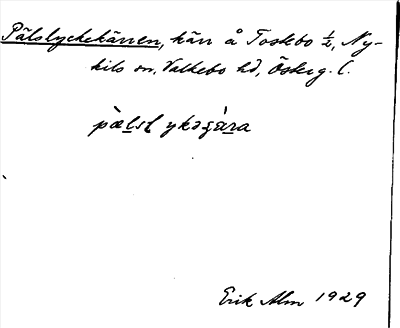 Pälslyckekärren, kärr å Toskebo ½, Ny-
kils sn, Valkebo hd, Österg. l.
Erik Alm 1929